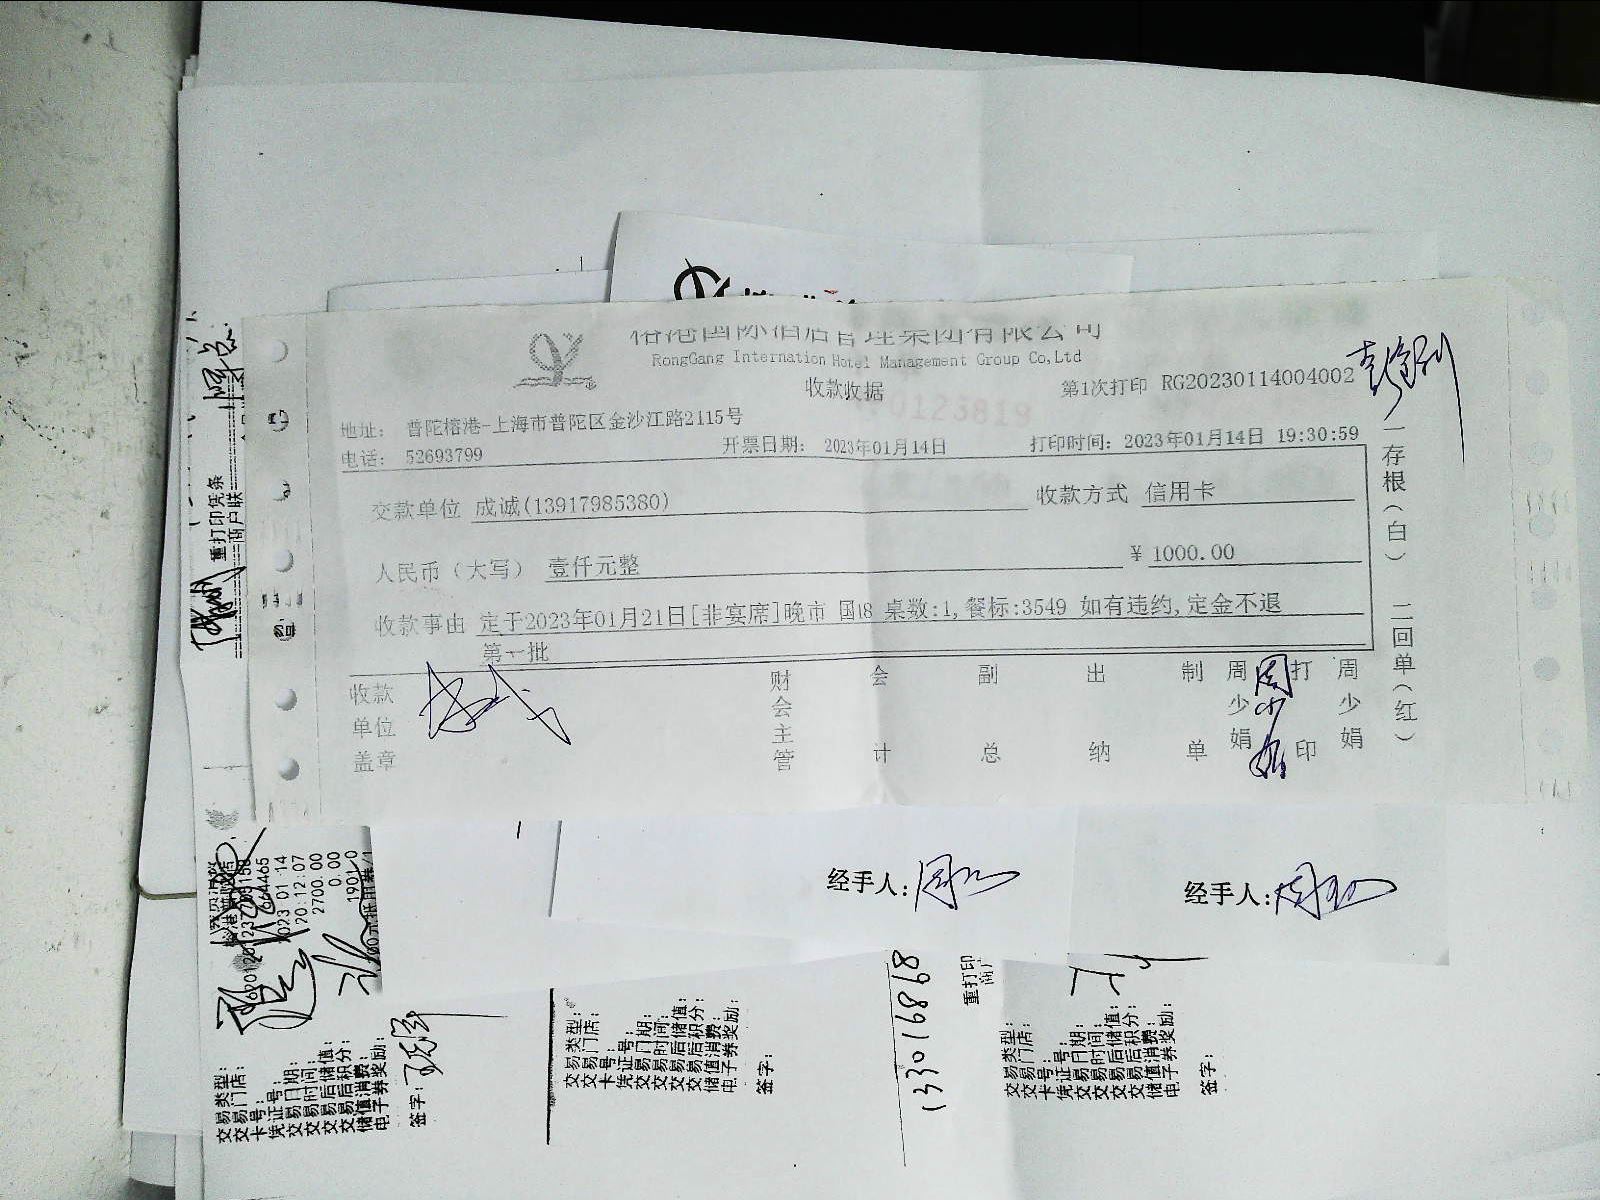 榕港国际酒店管理集团有限公司
RongGang Internation Hotel Management Group Co,Ltd
收款收据
第1次打印 RG20230114004002
0123819
地址： 普陀榕港-上海市普陀区金沙江路2115号
电话： 52693799
开票日期： 2023年01月14日
打印时间： 2023年01月14日 19:30:59
交款单位 成诚(13917985380)
收款方式 信用卡
人民币（大写） 壹仟元整
¥ 1000.00
收款事由 定于2023年01月21日[非宴席]晚市 国18 桌数:1,餐标:3549 如有违约,定金不退
第一批
收款单位盖章
财会主管
会计
副总
出纳
制单
周少娟
周少娟
打印
周少娟
一存根（白） 二回单（红）
重打印凭条
商户联
664465
2023-01-14
20:12:07
2700.00
0.00
交易类型：
交易门店：
卡号：
凭证号：
交易日期：
交易时间：
交易后储值：
交易后积分：
储值消费：
电子券奖励：
签字：
经手人：
交易类型：
交易门店：
卡号：
凭证号：
交易日期：
交易时间：
交易后储值：
交易后积分：
储值消费：
电子券奖励：
签字：
133016868
重打印
商户
经手人：
交易类型：
交易门店：
卡号：
凭证号：
交易日期：
交易时间：
交易后储值：
交易后积分：
储值消费：
电子券奖励：
签字：